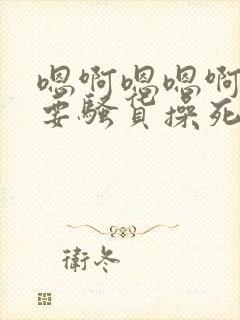 嗯啊嗯嗯啊
要骚货操死
衛冬